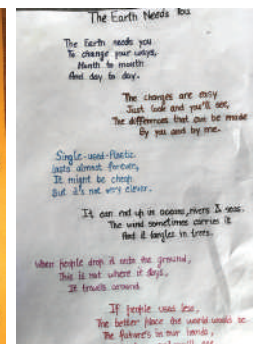 The Earth Needs You
The Earth needs you
To change your ways,
Month to month
And day to day.
The changes are easy
Just look and you'll see,
The differences that can be made
By you and by me.
Single-used-Plastic
lasts almost forever,
It might be cheap
But it's not very clever.
It can end up in oceans, rivers & seas.
The wind sometimes carries it
And it tangles in trees.
When people drop it onto the ground,
This is not where it stays,
It travels around.
If people used less,
The better place the world would be.
The future's in our hands,